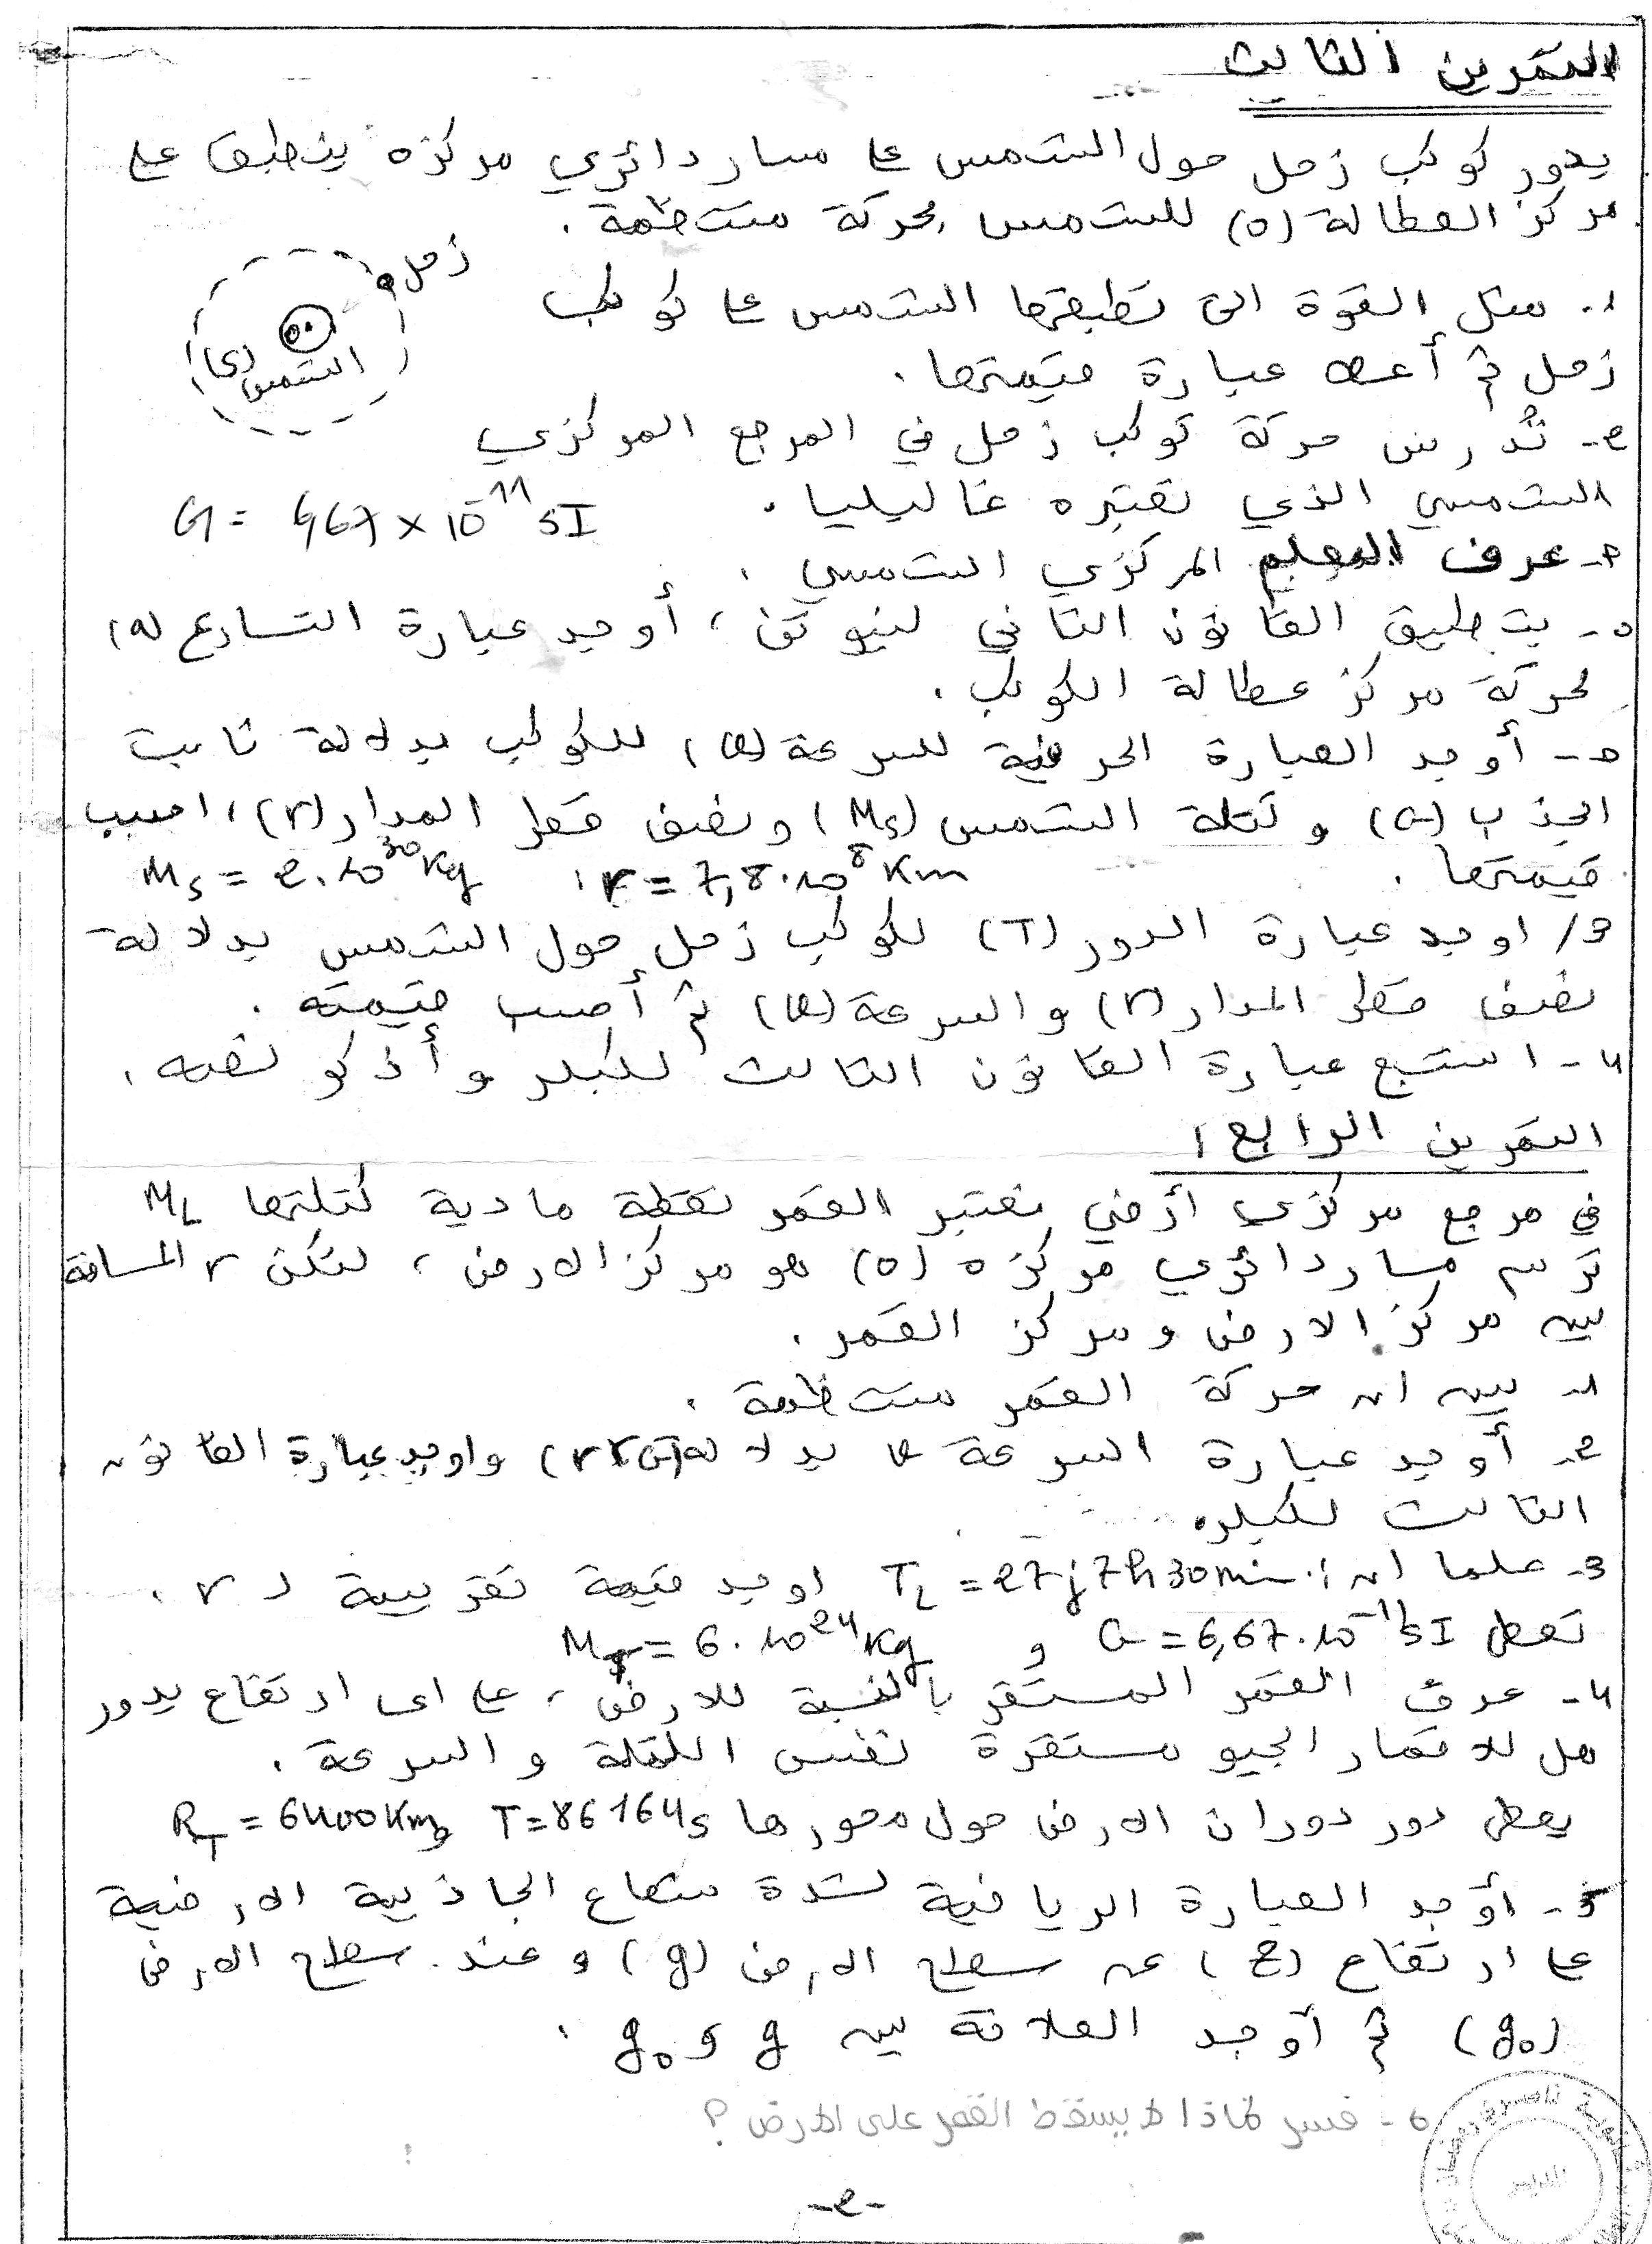 التمرين الثالث
يدور كوكب زحل حول الشمس على مسار دائري مركزه ينطبق على
مركز العطالة (o) للشمس بحركة منتظمة .
زحل
الشمس (s)
1- مثل القوة التي تطبقها الشمس على كوكب
زحل ثم أعط عبارة قيمتها .
2- تُدرس حركة كوكب زحل في المرجع المركزي
الشمسي الذي نعتبره غاليليا .
G = 6,67 × 10⁻¹¹ SI
- عرف المعلم المركزي الشمسي .
- بتطبيق القانون الثاني لنيوتن ، أوجد عبارة التسارع (a)
لحركة مركز عطالة الكوكب .
- أوجد العبارة الحرفية للسرعة (v) للكوكب بدلالة ثابت
الجذب (G) و كتلة الشمس (Ms) و نصف قطر المدار (r) ، احسب
قيمتها . r = 7,8.10⁸ Km ، Ms = 2.10³⁰ Kg
3/ اوجد عبارة الدور (T) لكوكب زحل حول الشمس بدلالة
نصف قطر المدار (r) والسرعة (v) ثم أحسب قيمته .
4- استنتج عبارة القانون الثالث لكبلر و أذكر نصه .
التمرين الرابع :
في مرجع مركزي أرضي نعتبر القمر نقطة مادية كتلتها ML
ترسم مسار دائري مركزه (o) هو مركز الارض ، لتكن r المسافة
بين مركز الارض و مركز القمر .
1- بين ان حركة القمر منتظمة .
2- أوجد عبارة السرعة v بدلالة واوجد عبارة القانون
الثالث لكبلر .
3- علما ان : TL = 27j 7h 30min اوجد قيمة تقريبية لـ r .
تعطى G = 6,67.10⁻¹¹ SI و MT = 6.10²⁴ Kg
4- عرف القمر المستقر بالنسبة للارض ، على اى ارتفاع يدور
هل للاقمار الجيو مستقرة نفس الكتلة و السرعة .
يعطى دور دوران الارض حول محورها T = 86164s و RT = 6400Km
5- أوجد العبارة الرياضية لشدة شعاع الجاذبية الارضية
على ارتفاع (z) عن سطح الارض (g) و عند سطح الارض
(g₀) ثم أوجد العلاقة بين g و g₀ .
6- فسر لماذا لا يسقط القمر على الارض ؟
-2-